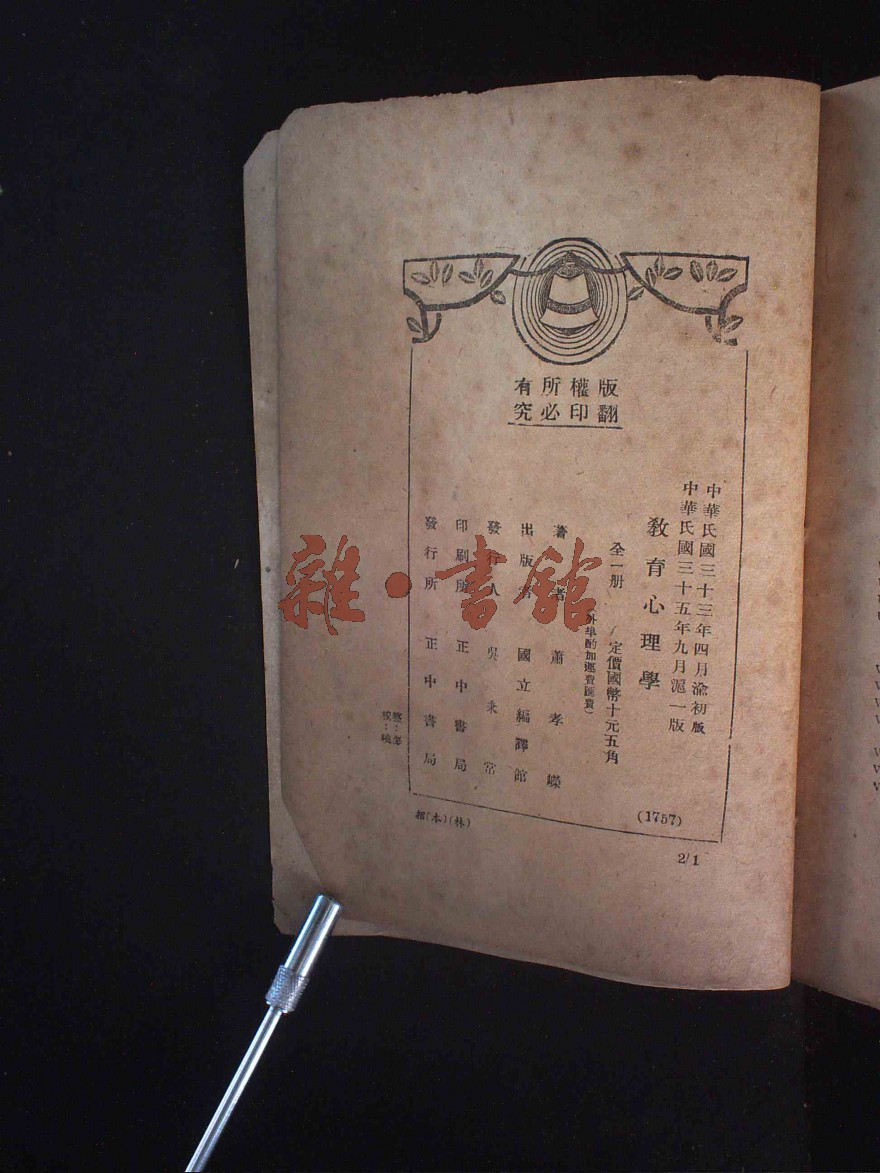 版權所有
翻印必究
中華民國三十三年四月渝初版
中華民國三十五年九月滬一版
教育心理學
全一册 定價國幣十元五角
(外埠酌加運費匯費)
著者 蕭孝嶸
出版者 國立編譯館
發行人 吳秉常
印刷所 正中書局
發行所 正中書局
(1757)
(本)(林)
2/1
雜·書館